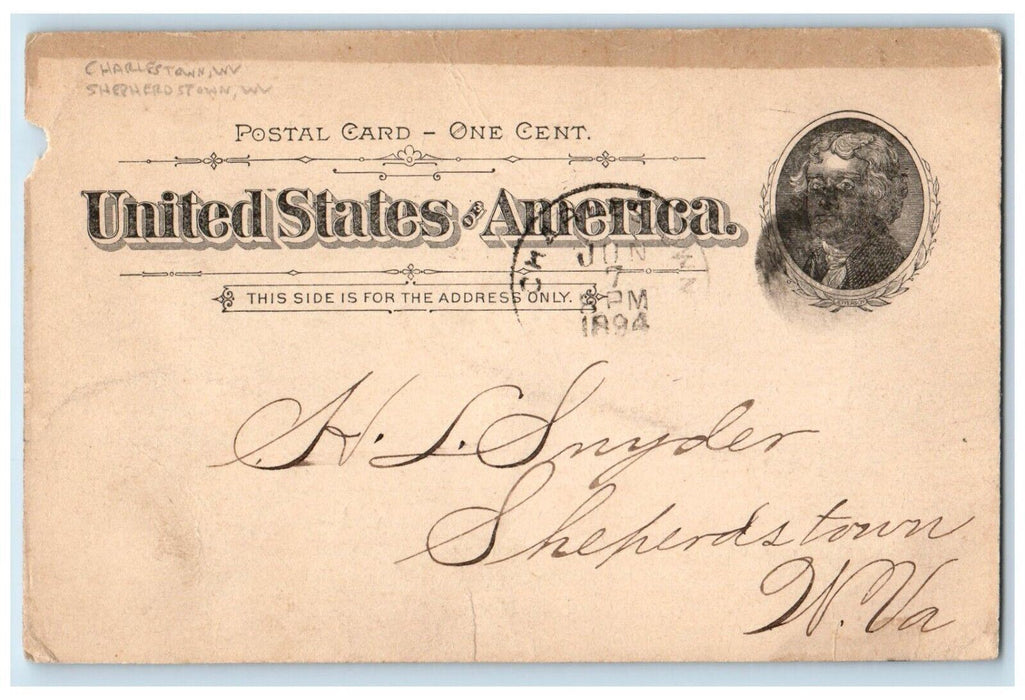 CHARLESTOWN, WV
SHEPHERDSTOWN, WV
POSTAL CARD – ONE CENT.
United States OF America.
THIS SIDE IS FOR THE ADDRESS ONLY.
JUN
7
PM
1894
H. L. Snyder
Sheperdstown
W. Va